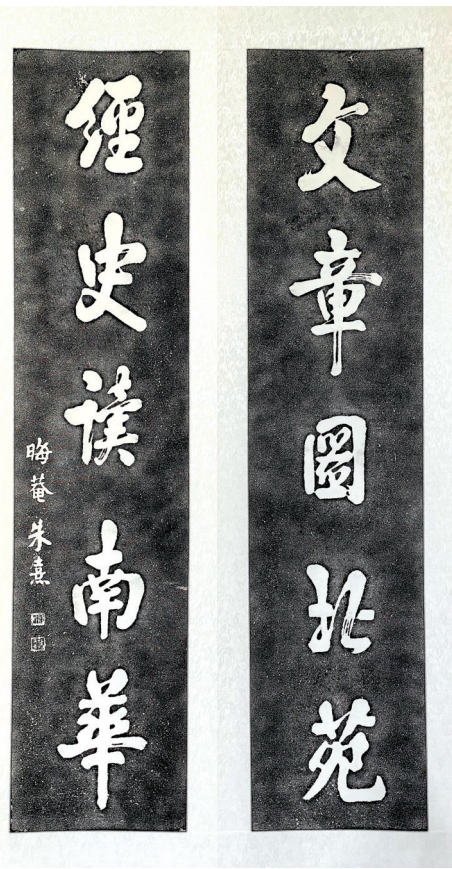 文章圖北苑
經史讀南華
晦菴朱熹